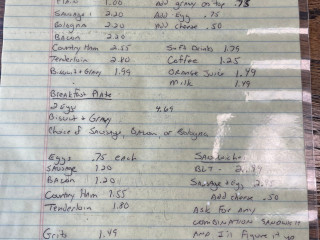 Plain 1.00 Add gravy on top .75
Sausage 2.20 Add egg .75
Bologna 2.20 Add cheese .50
Bacon 2.20
Country Ham 2.55 Soft Drinks 1.79
Tenderloin 2.80 Coffee 1.25
Biscuit + Gravy 1.99 Orange Juice 1.49
Milk 1.49
Breakfast Plate
2 Egg 4.69
Biscuit + Gravy
Choice of Sausage, Bacon, or Bologna
Eggs .75 each Sandwiches
Sausage 1.20 BLT
Bacon 1.20 Sausage + egg
Country Ham 1.55 Add cheese .50
Tenderloin 1.80 Ask for any
combination sandwich
Grits 1.49 And I'll figure it up